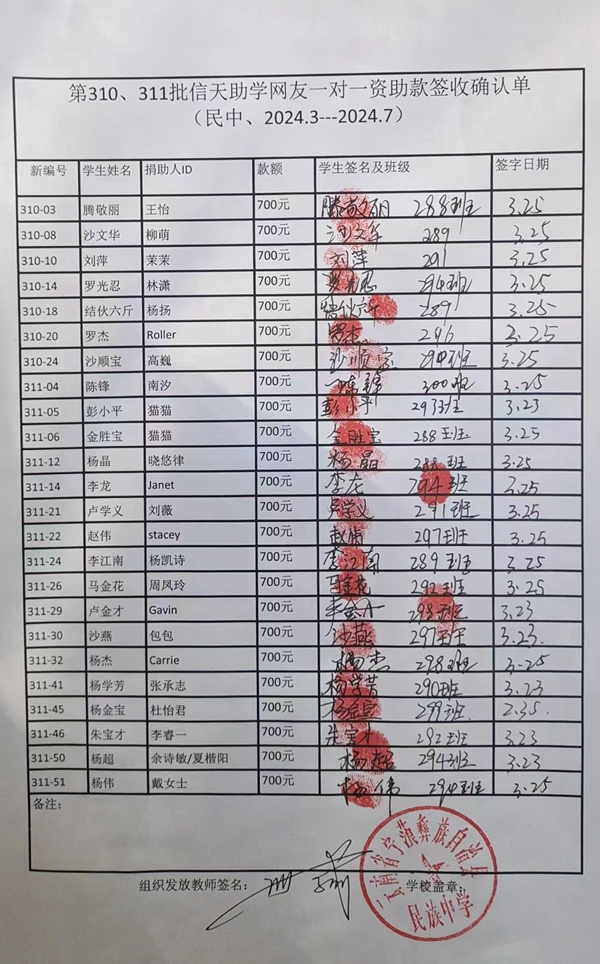 第310、311批信天助学网友一对一资助款签收确认单
（民中、2024.3---2024.7）
新编号 学生姓名 捐助人ID 款额 学生签名及班级 签字日期
310-03 腾敬丽 王怡 700元 腾敬丽 288班 3.25
310-08 沙文华 柳萌 700元 沙文华 289 3.25
310-10 刘萍 茉茉 700元 刘萍 291 3.25
310-14 罗光忍 林潇 700元 罗光忍 294班 3.25
310-18 结伙六斤 杨扬 700元 结伙六斤 289 3.25
310-20 罗杰 Roller 700元 罗杰 296 3.25
310-24 沙顺宝 高巍 700元 沙顺宝 294班 3.25
311-04 陈锋 南汐 700元 陈锋 300班 3.25
311-05 彭小平 猫猫 700元 彭小平 297班 3.25
311-06 金胜宝 猫猫 700元 金胜宝 288班 3.25
311-12 杨晶 晓悠律 700元 杨晶 288班 3.25
311-14 李龙 Janet 700元 李龙 294班 3.25
311-21 卢学义 刘薇 700元 卢学义 291班 3.25
311-22 赵伟 stacey 700元 赵伟 297班 3.25
311-24 李江南 杨凯诗 700元 李江南 289班 3.25
311-26 马金花 周凤玲 700元 马金花 292班 3.25
311-29 卢金才 Gavin 700元 298班 3.23
311-30 沙燕 包包 700元 沙燕 297班 3.23.
311-32 杨杰 Carrie 700元 杨杰 298班 3.25
311-41 杨学芳 张承志 700元 杨学芳 290班 3.23
311-45 杨金宝 杜怡君 700元 杨金宝 299班 2.35.
311-46 朱宝才 李睿一 700元 朱宝才 292班 3.23
311-50 杨超 余诗敏/夏楷阳 700元 杨超 294班 3.23
311-51 杨伟 戴女士 700元 杨伟 294班 3.25
备注：
云南省宁蒗彝族自治县
组织发放教师签名： 学校盖章：
民族中学